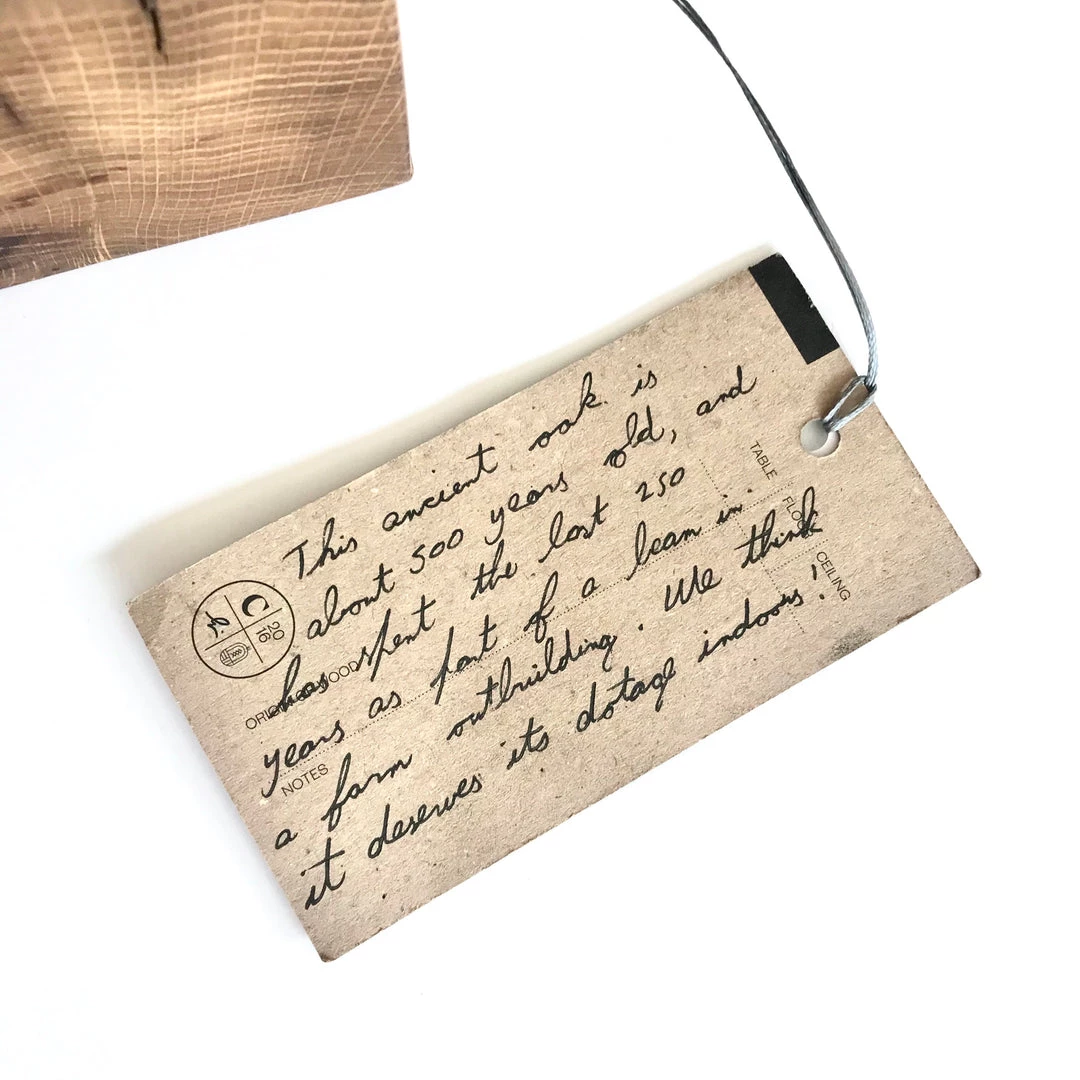 This ancient oak is
about 500 years old, and
has spent the last 250
years as part of a beam in
a farm outbuilding. We think
it deserves its dotage indoors!
20
16
NOTES
TABLE
FLOOR
CEILING